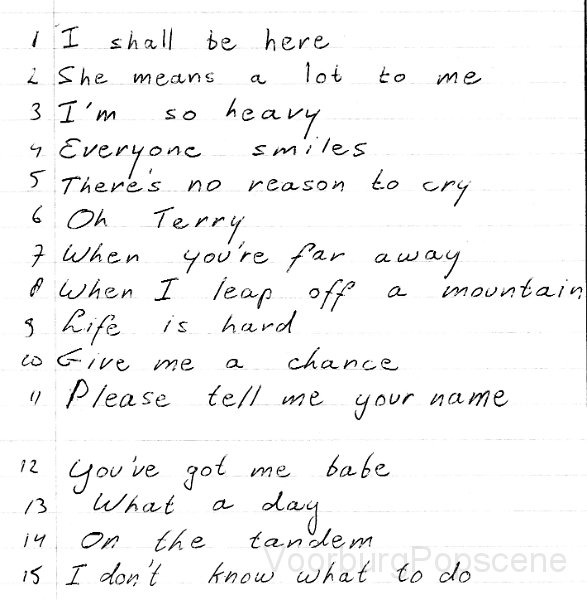 1 I shall be here
2 She means a lot to me
3 I'm so heavy
4 Everyone smiles
5 There's no reason to cry
6 Oh Terry
7 When you're far away
8 When I leap off a mountain
9 Life is hard
10 Give me a chance
11 Please tell me your name
12 You've got me babe
13 What a day
14 On the tandem
15 I don't know what to do
VoorburgPopscene